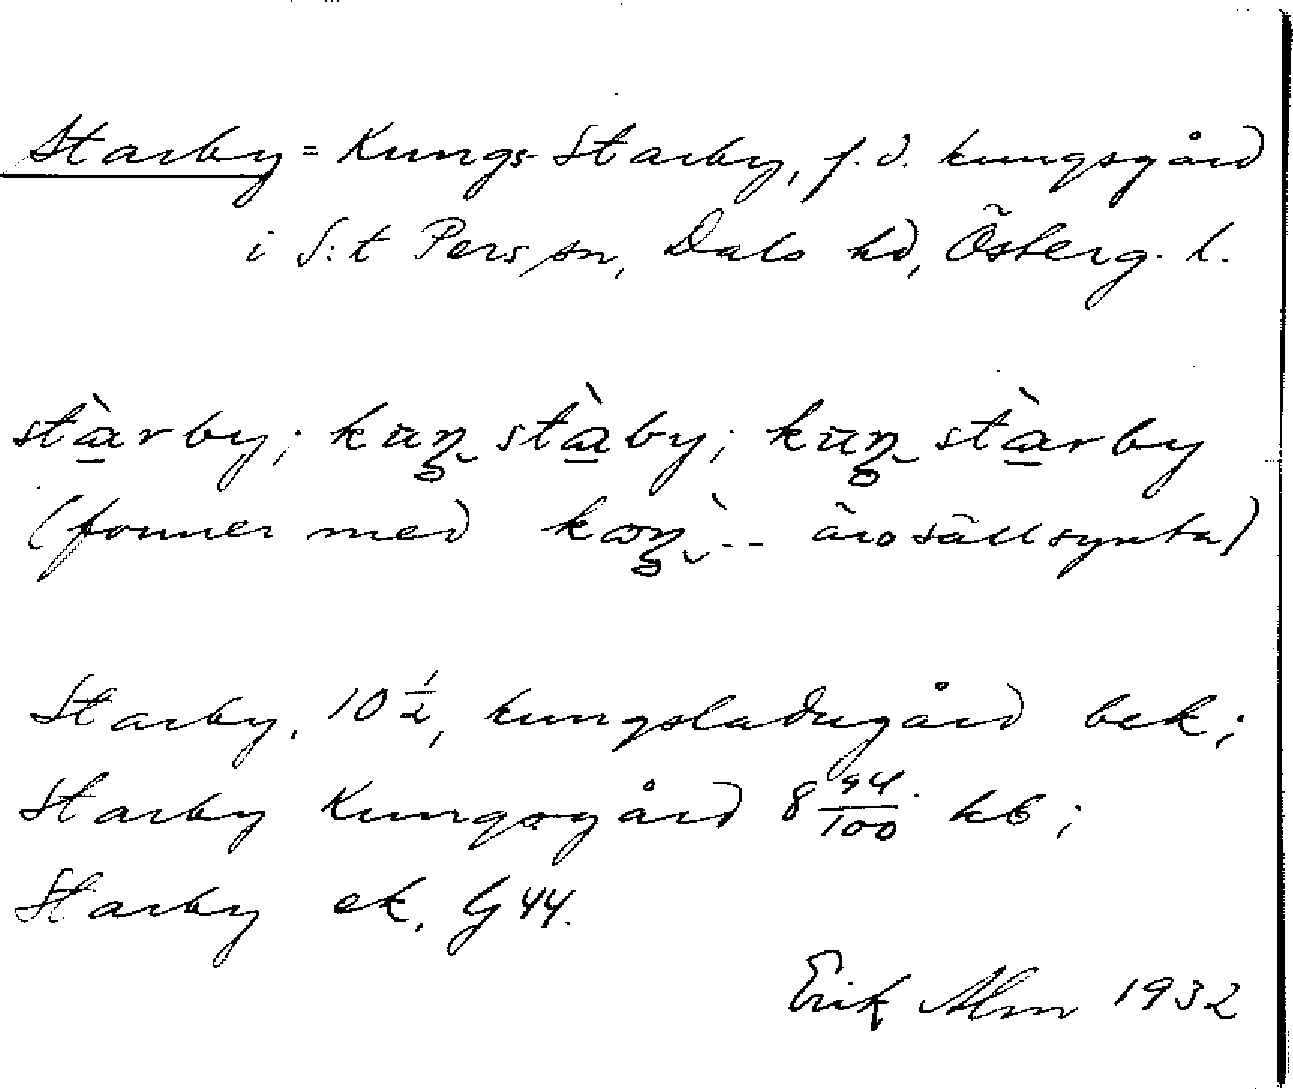 Starby = Kungs-Starby, f.d. kungsgård
i S:t Pers sn, Dals hd, Österg. l.
stàrby; kuŋ stàby; kuŋ stàrby
(former med koŋ -- äro sällsynta)
Starby, 10 1/2, kungsladugård bek;
Starby Kungsgård 8 94/100 kb;
Starby ek, G 44.
Erik Alm 1932